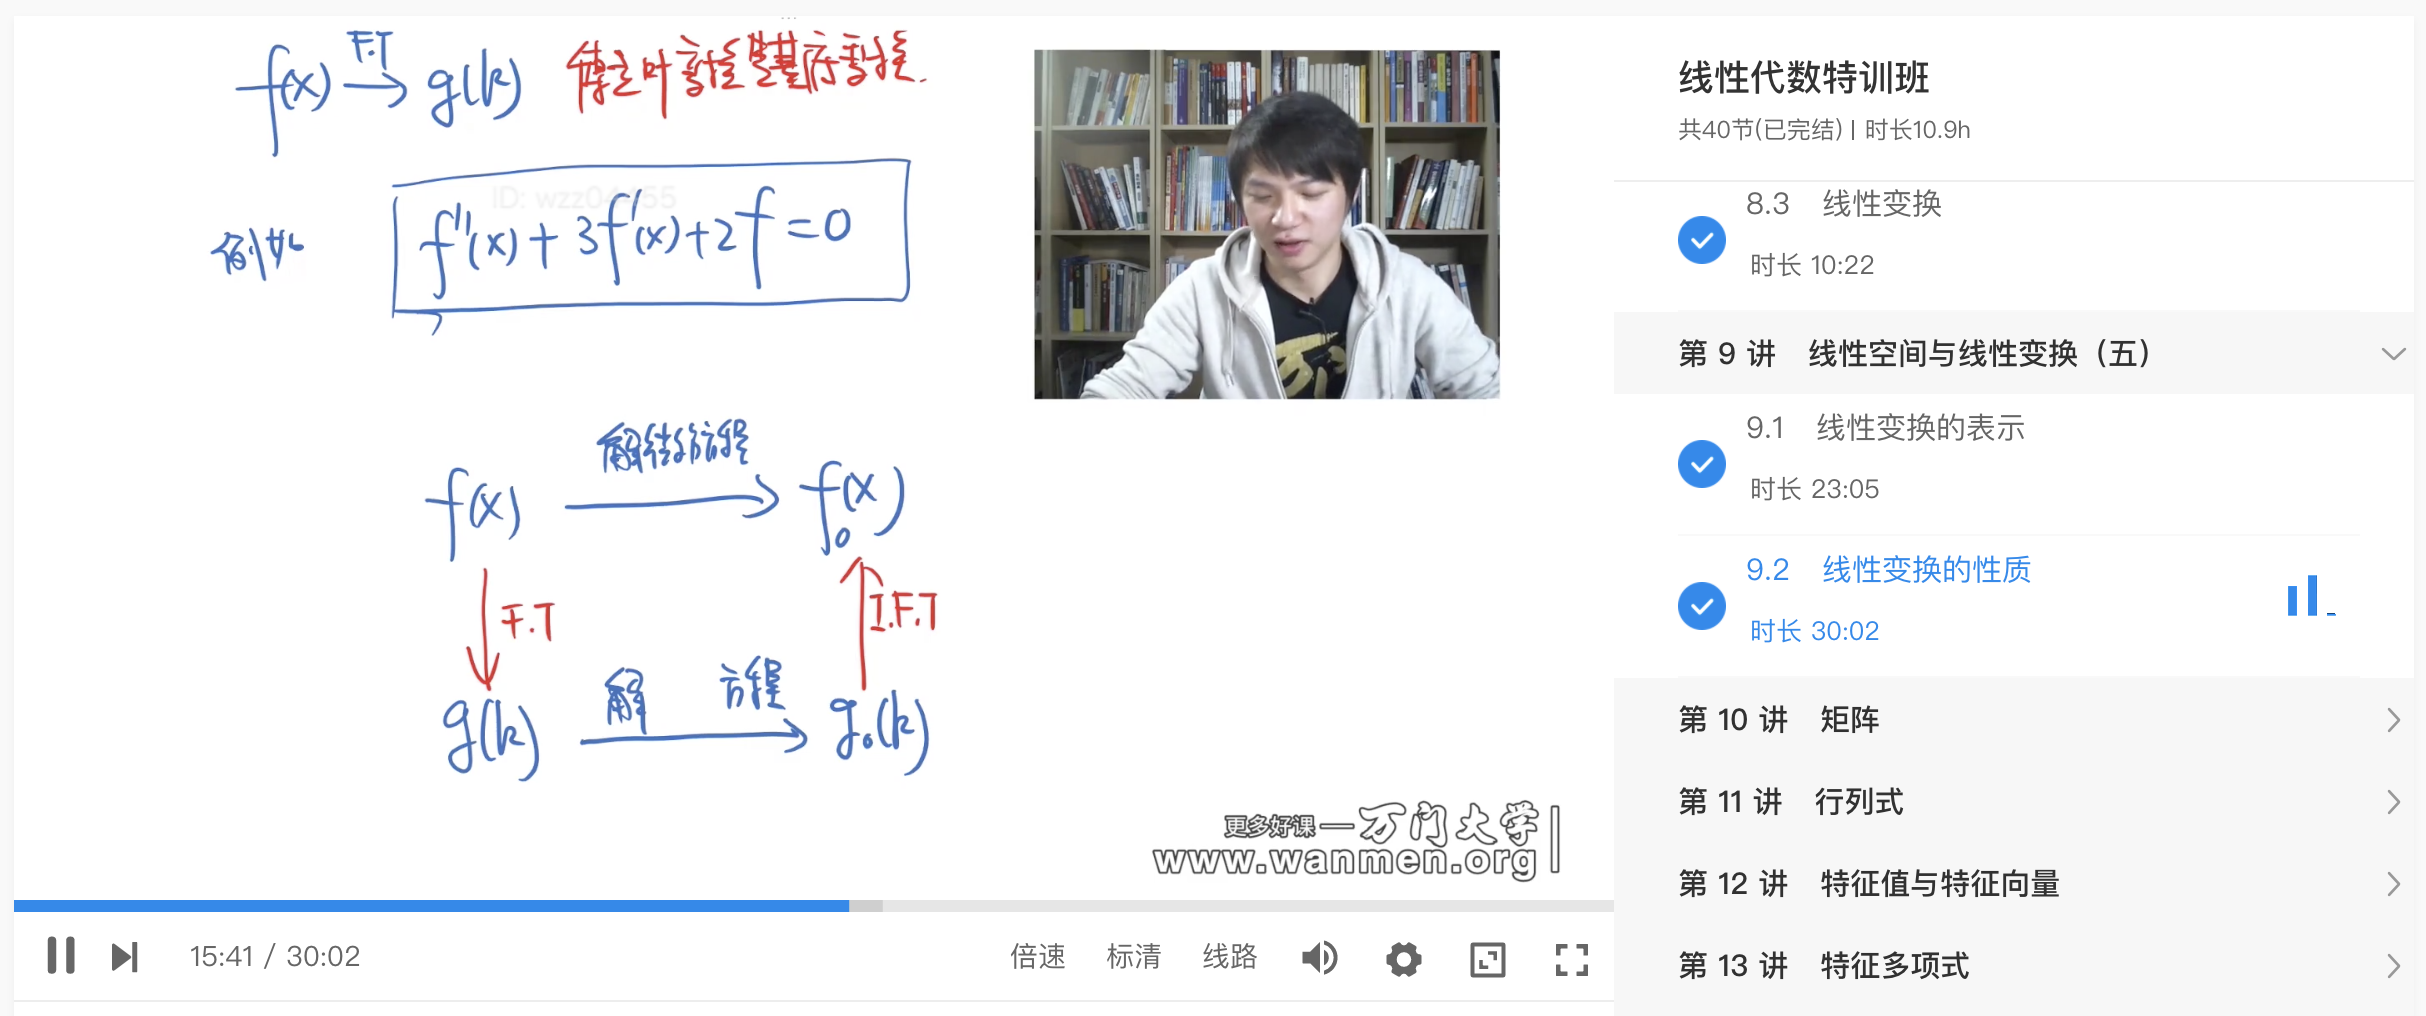 f(x) F.T → g(k) 傅立叶变换
ID: wzz04455
例如 f''(x) + 3f'(x) + 2f = 0
f(x) 解 方程 → f₀(x)
F.T
I.F.T
g(k) 解 方程 → g₀(k)
更多好课—万门大学
www.wanmen.org
15:41 / 30:02
倍速 标清 线路
线性代数特训班
共40节(已完结) | 时长10.9h
8.3 线性变换
时长 10:22
第 9 讲 线性空间与线性变换（五）
9.1 线性变换的表示
时长 23:05
9.2 线性变换的性质
时长 30:02
第 10 讲 矩阵
第 11 讲 行列式
第 12 讲 特征值与特征向量
第 13 讲 特征多项式